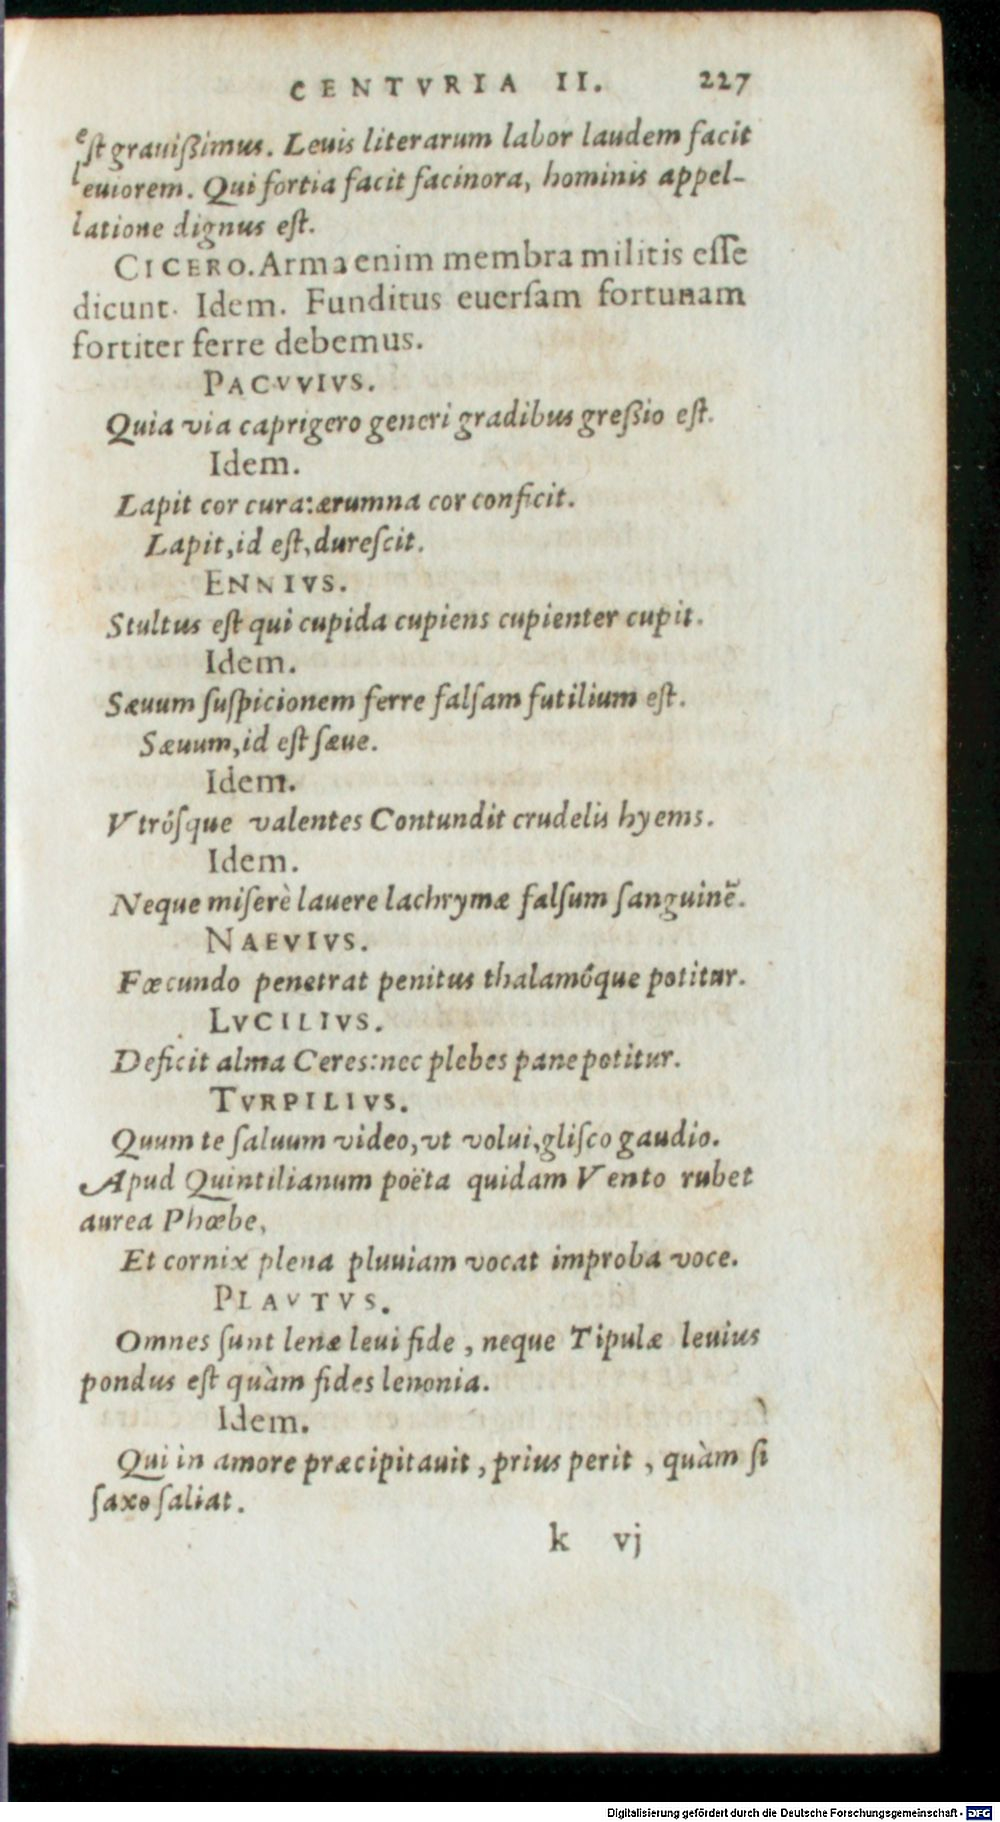 CENTVRIA II. 227
eſt grauiſsimus. Leuis literarum labor laudem facit
leuiorem. Qui fortia facit facinora, hominis appel-
latione dignus eſt.
CICERO. Arma enim membra militis eſſe
dicunt. Idem. Funditus euerſam fortunam
fortiter ferre debemus.
PACVVIVS.
Quia via caprigero generi gradibus greſsio eſt.
Idem.
Lapit cor cura: ærumna cor conficit.
Lapit, id eſt, dureſcit.
ENNIVS.
Stultus eſt qui cupida cupiens cupienter cupit.
Idem.
Sæuum ſuſpicionem ferre falſam futilium eſt.
Sæuum, id eſt ſæue.
Idem.
Vtróſque valentes Contundit crudelis hyems.
Idem.
Neque miſerè lauere lachrymæ falſum ſanguinẽ.
NAEVIVS.
Fœcundo penetrat penitus thalamóque potitur.
LVCILIVS.
Deficit alma Ceres: nec plebes pane potitur.
TVRPILIVS.
Quum te ſaluum video, vt volui, gliſco gaudio.
Apud Quintilianum poëta quidam Vento rubet
aurea Phœbe,
Et cornix plena pluuiam vocat improba voce.
PLAVTVS.
Omnes ſunt lenæ leui fide, neque Tipulæ leuius
pondus eſt quàm fides lenonia.
Idem.
Qui in amore præcipitauit, prius perit, quàm ſi
ſaxo ſaliat.
k vj
Digitalisierung gefördert durch die Deutsche Forschungsgemeinschaft - DFG